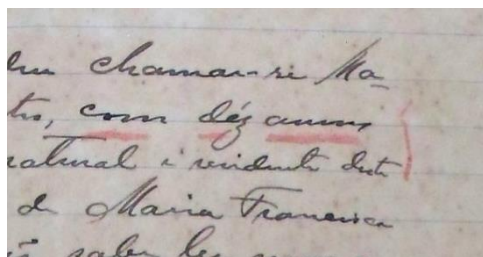 chamar-se Ma-
tro, com déz annos
natural e residente deste
de Maria Francisca
saber ler